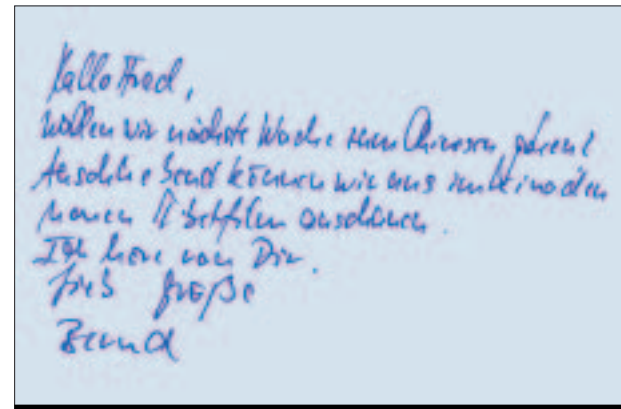 Hallo Fred,
wollen wir nächste Woche zum Chinesen gehen?
Anschließend können wir uns im Kino den
neuen Tibetfilm anschauen.
Ich höre von Dir.
Grüße
Bernd